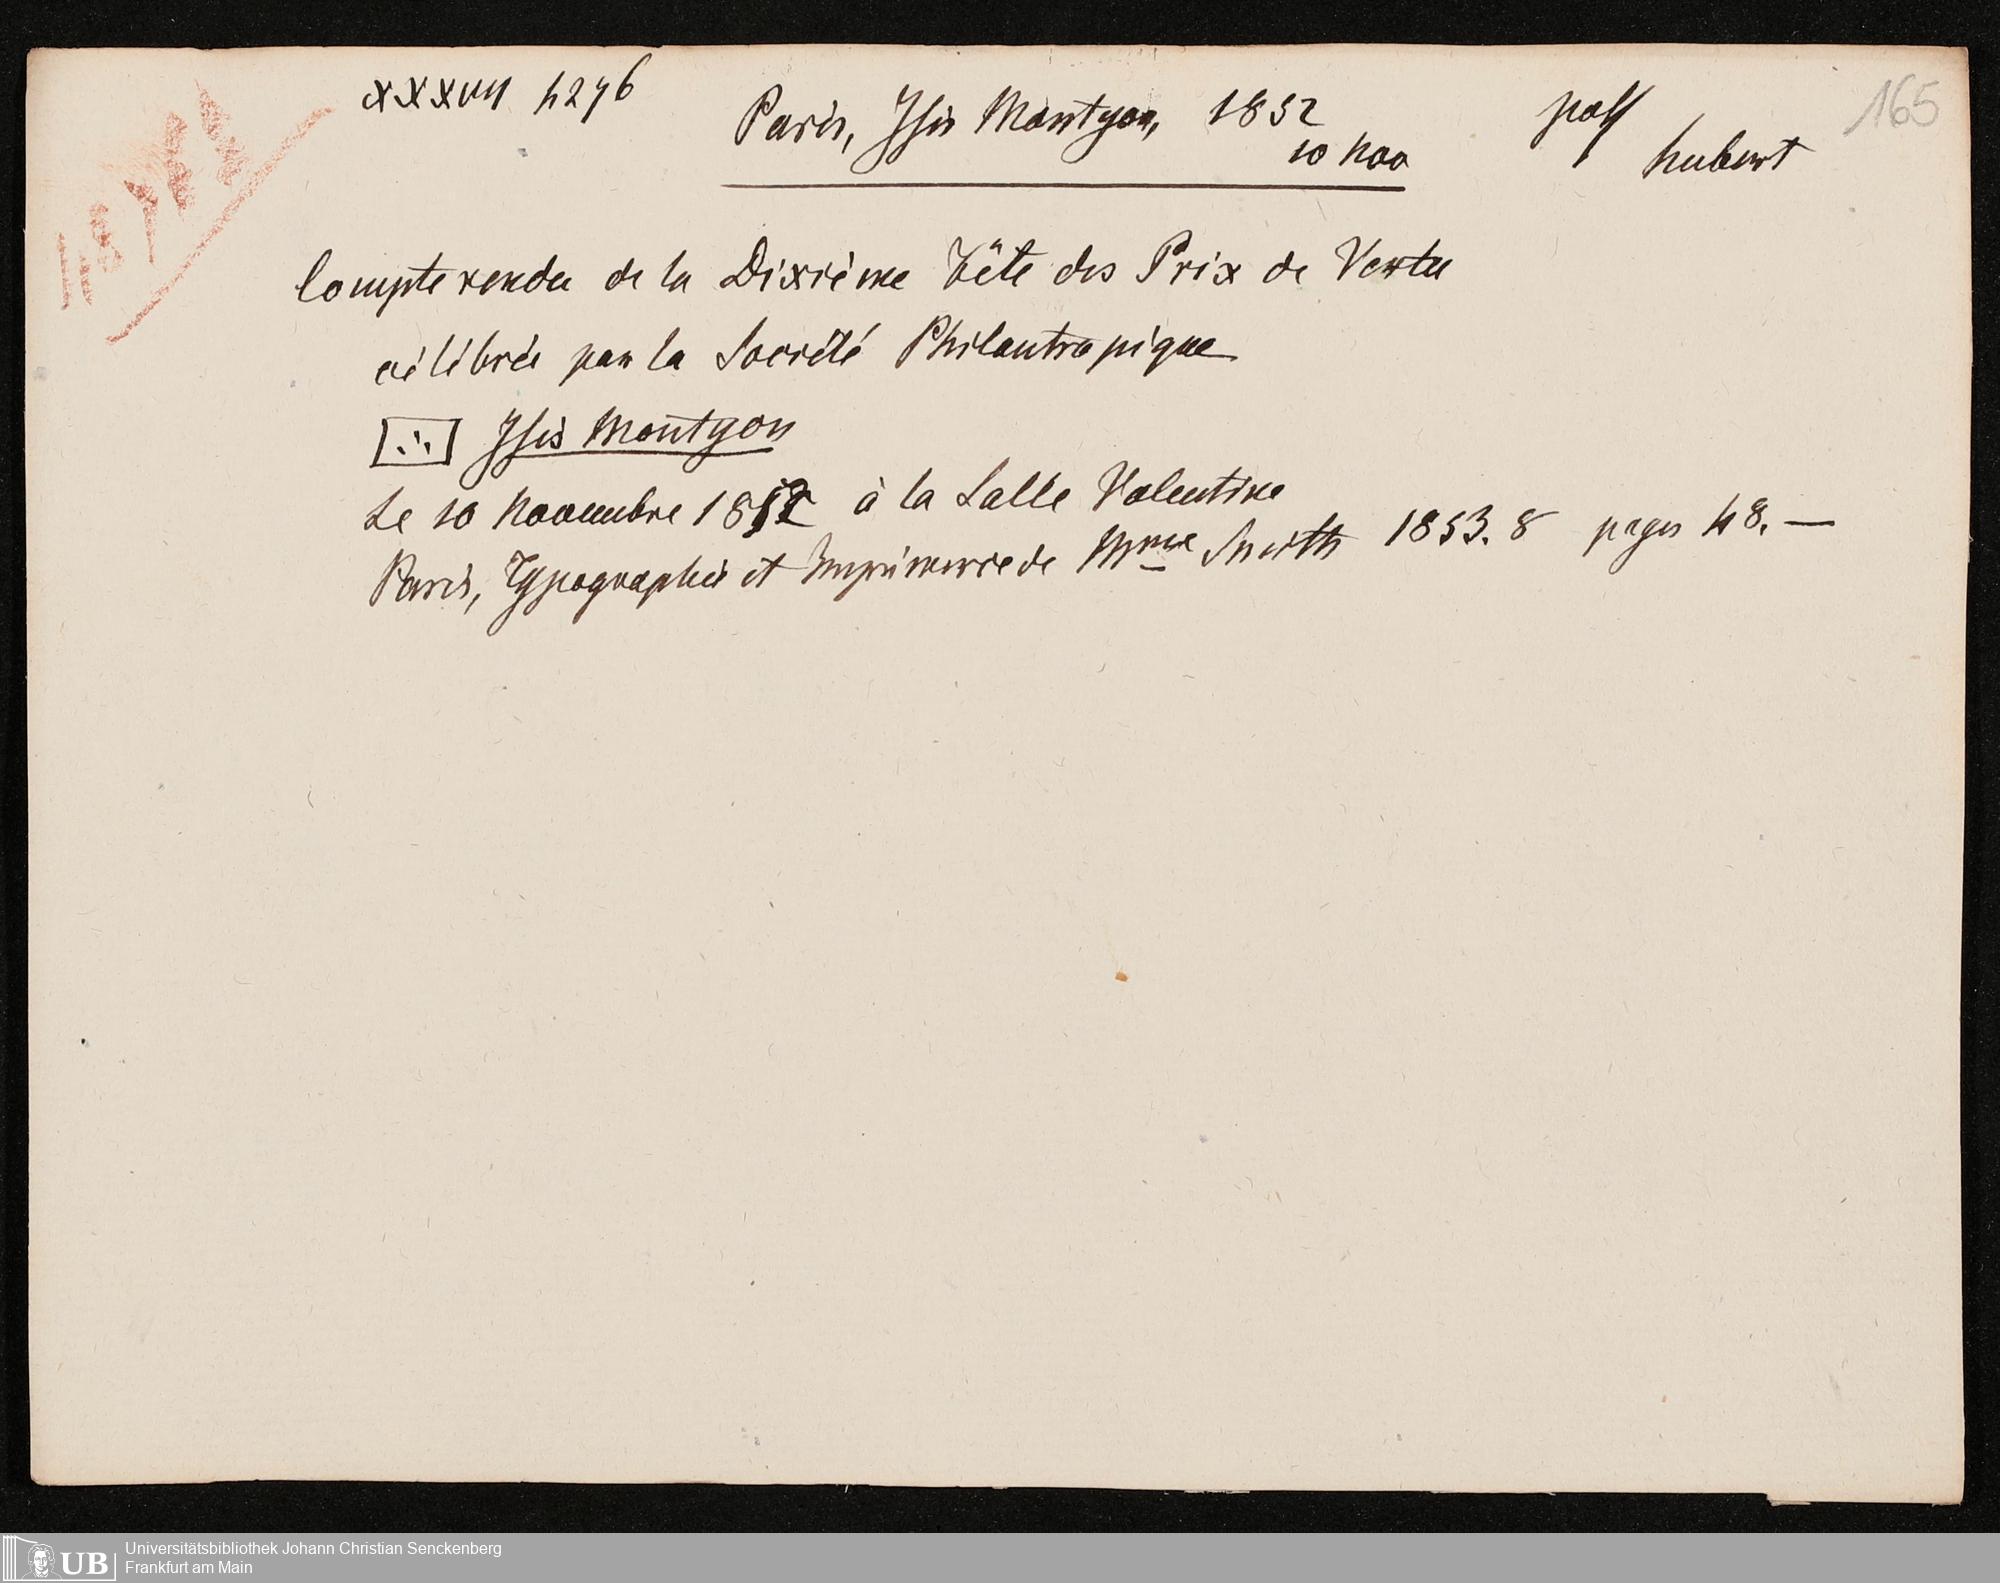 XXXVII 4276
Paris, Isis Montyon, 1852
10 Nov
165
hubert
Compte rendu de la Dixième Fête des Prix de Vertu
célébrée par la Société Philantropique
[∴] Isis Montyon
Le 10 Novembre 1852 à la Salle Valentino
Paris, Typographie et Imprimerie de Mme Smith 1853. 8 pages 48. —
UB
Universitätsbibliothek Johann Christian Senckenberg
Frankfurt am Main